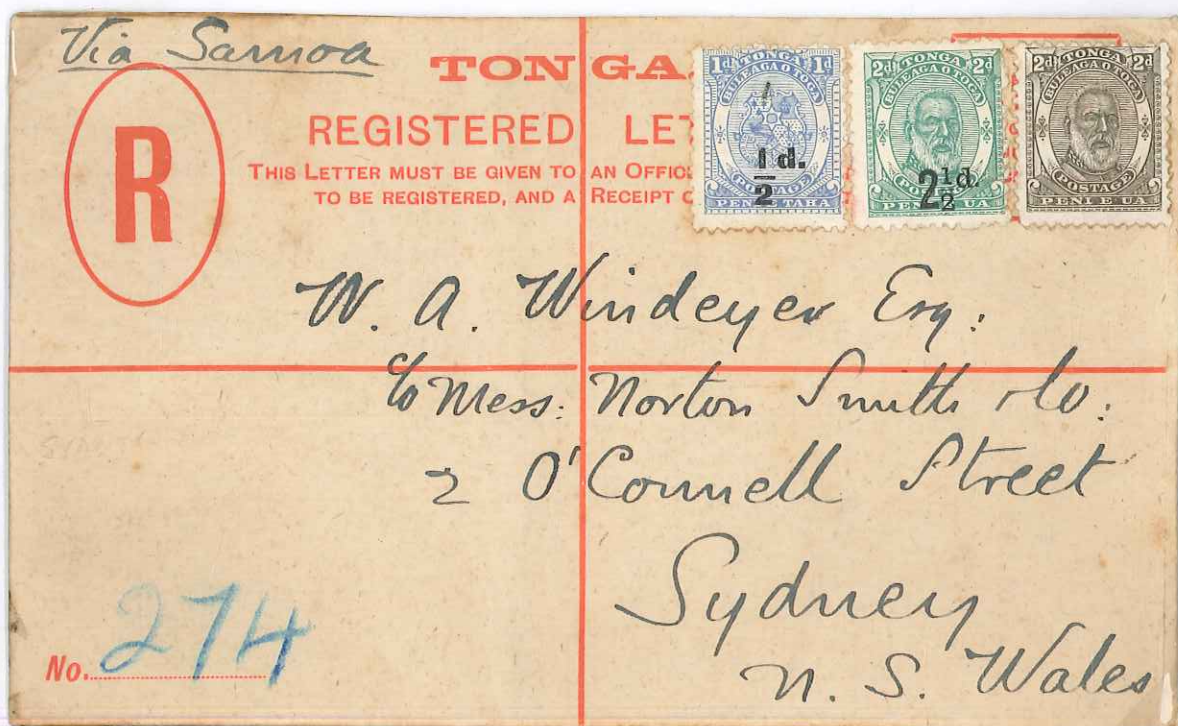 Via Samoa
TONGA.
R
REGISTERED LET
THIS LETTER MUST BE GIVEN TO AN OFFIC
TO BE REGISTERED, AND A RECEIPT
1d TONGA 1d
BULEAGA O TOGA
1/2 d.
POSTAGE
PENI E TAHA
2d TONGA 2d
BULEAGA O TOGA
2 1/2 d.
PENI E UA
2d TONGA 2d
BULEAGA O TOGA
POSTAGE
PENI E UA
W. A. Windeyer Esq:
c/o Mess: Norton Smith & Co:
2 O'Connell Street
Sydney
N. S. Wales
No. 274